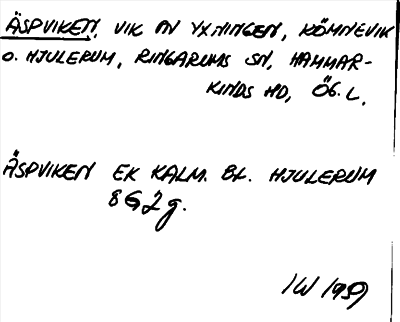 ÄSPVIKEN, VIK AV YXNINGEN, KÖMNEVIK
O. HJULERUM, RINGARUMS SN, HAMMAR-
KINDS HD, ÖG. L.
ÄSPVIKEN EK KALM. BL. HJULERUM
8G2g.
IW 1959